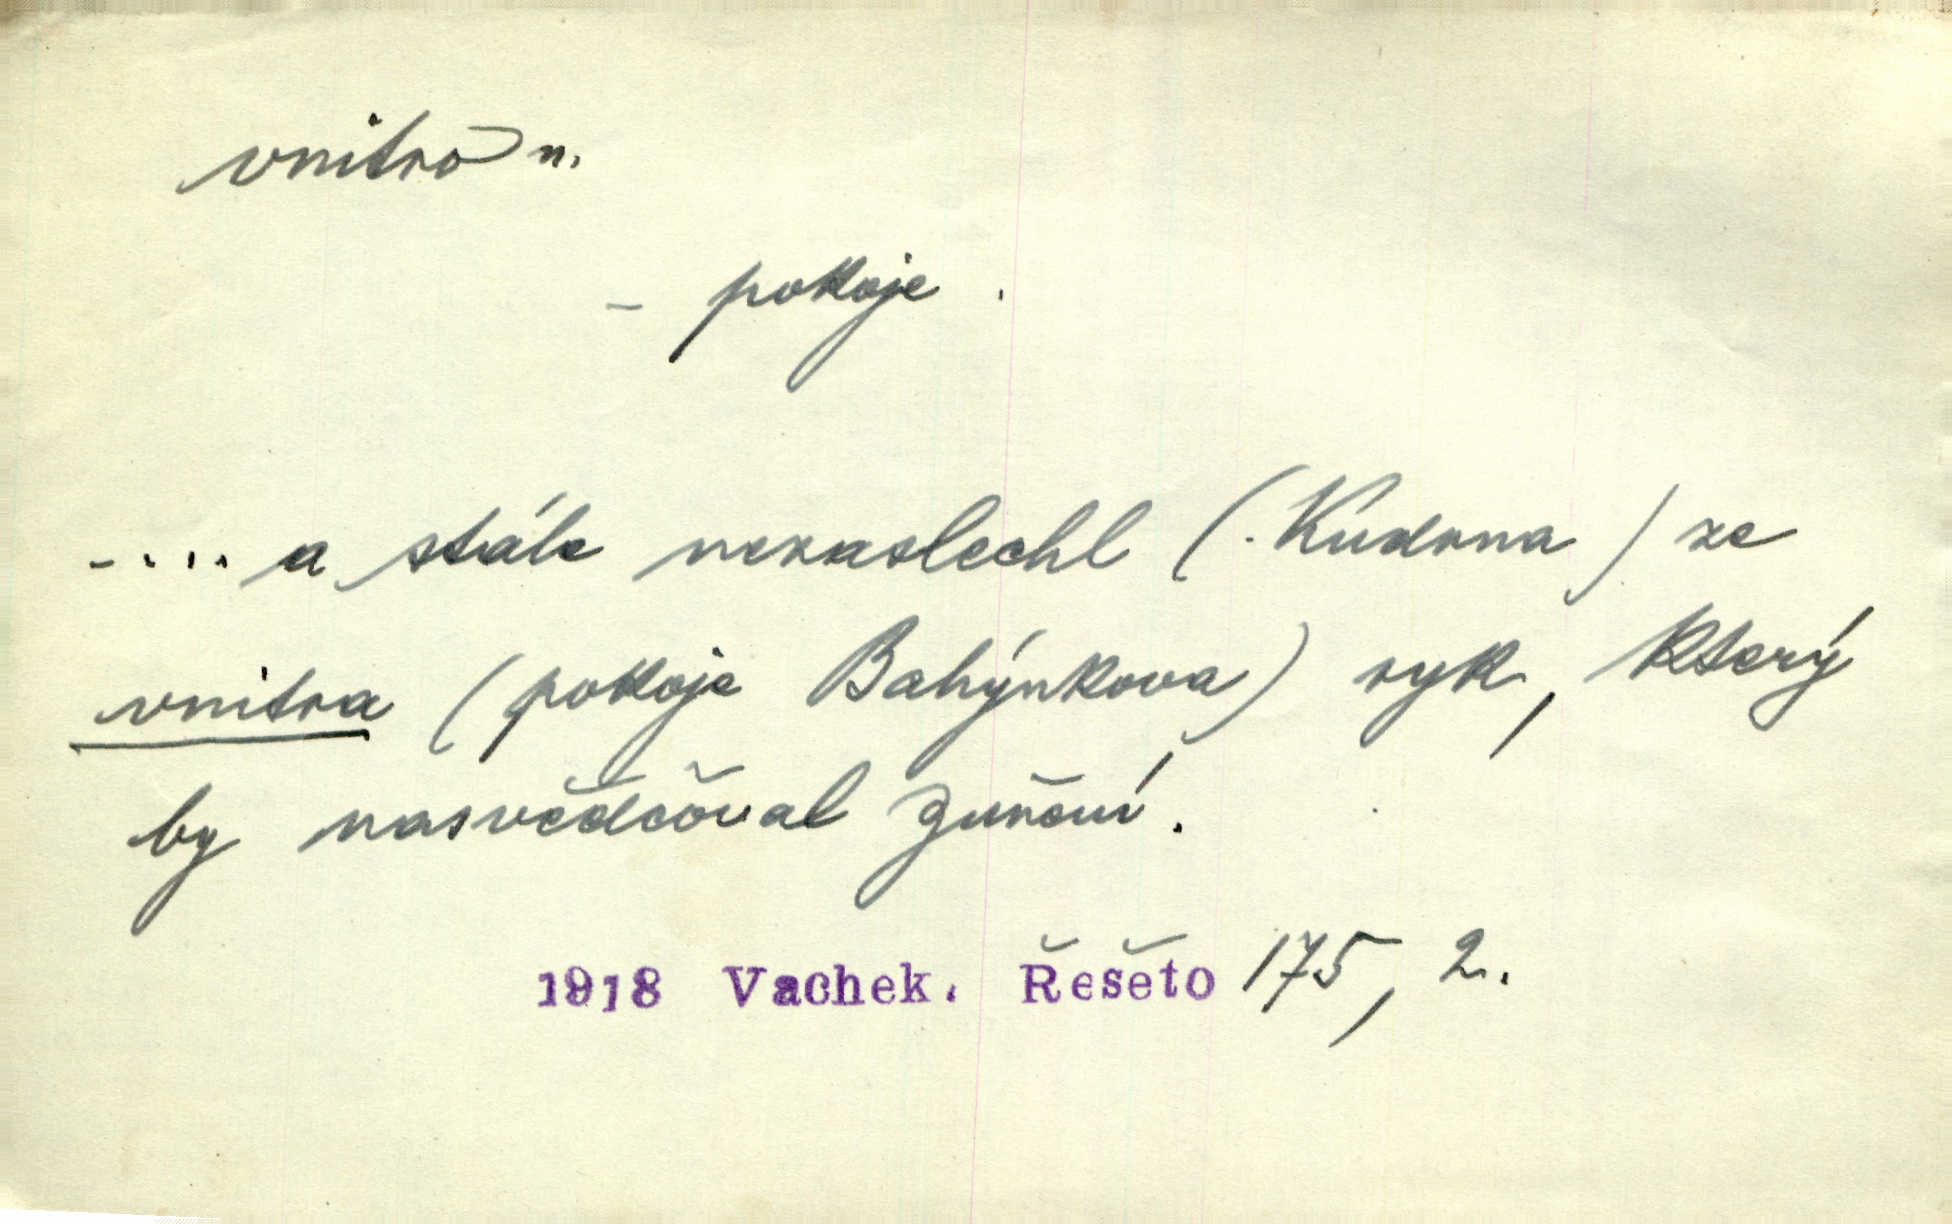 vnitro n.
- pokoje .
..... a stále nezaslechl (Kudrna) ze
vnitra (pokoje Bahýnkova) ryk, který
by nasvědčoval zuření.
1918 Vachek. Řešeto 175, 2.